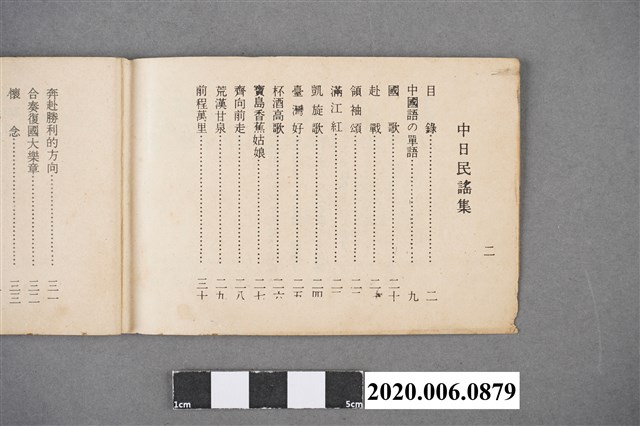 二
中日民謠集
目錄……………………二
中國語の單語……………………九
國歌……………………二十
赴戰……………………
領袖頌……………………
滿江紅……………………
凱旋歌……………………二四
臺灣好……………………二五
杯酒高歌……………………二六
寶島香蕉姑娘……………………二七
齊向前走……………………二八
荒漢甘泉……………………二九
前程萬里……………………三十
奔赴勝利的方向……………………三一
合奏復國大樂章……………………三二
懷念……………………三三
1cm
5cm
2020.006.0879